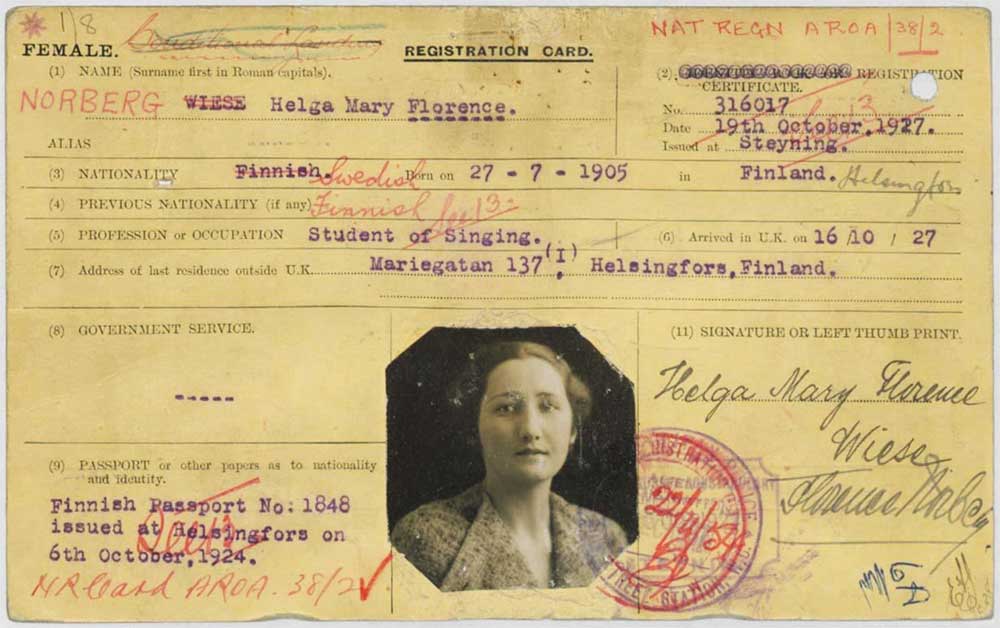 1/8
NAT REGN AROA/38/2
FEMALE. Conditional Landing
REGISTRATION CARD.
(1) NAME (Surname first in Roman capitals).
NORBERG WIESE Helga Mary Florence.
ALIAS
(2) REGISTRATION
CERTIFICATE.
No. 316017
Date 19th October, 1927.
Issued at Steyning.
(3) NATIONALITY Finnish. Swedish Born on 27 - 7 - 1905 in Finland. Helsingfors
(4) PREVIOUS NATIONALITY (if any) Finnish
(5) PROFESSION or OCCUPATION Student of Singing. (6) Arrived in U.K. on 16/10/27
(7) Address of last residence outside U.K. Mariegatan 137(I), Helsingfors, Finland.
(8) GOVERNMENT SERVICE.
-----
(9) PASSPORT or other papers as to nationality
and identity.
Finnish Passport No: 1848
issued at Helsingfors on
6th October, 1924.
NR Card AROA. 38/2
(11) SIGNATURE OR LEFT THUMB PRINT.
Helga Mary Florence
Wiese
Florence Norberg